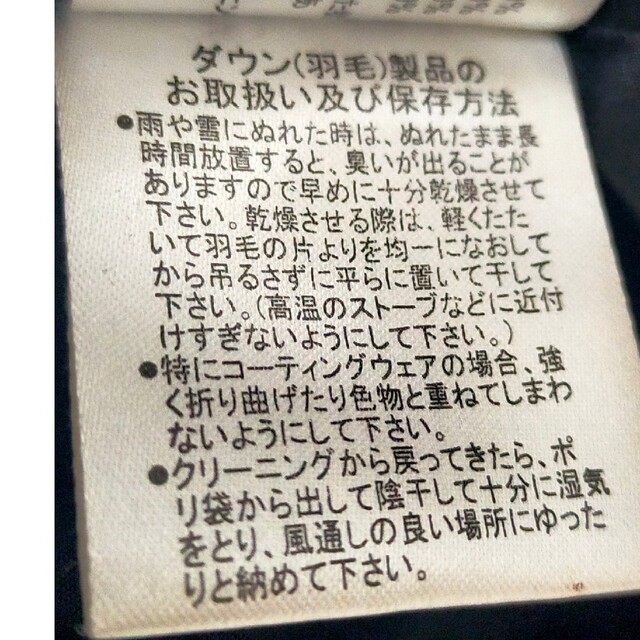 ダウン(羽毛)製品の
お取扱い及び保存方法
●雨や雪にぬれた時は、ぬれたまま長
時間放置すると、臭いが出ることが
ありますので早めに十分乾燥させて
下さい。乾燥させる際は、軽くたた
いて羽毛の片よりを均一になおして
から吊るさずに平らに置いて干して
下さい。(高温のストーブなどに近付
けすぎないようにして下さい。)
●特にコーティングウェアの場合、強
く折り曲げたり色物と重ねてしまわ
ないようにして下さい。
●クリーニングから戻ってきたら、ポ
リ袋から出して陰干して十分に湿気
をとり、風通しの良い場所にゆった
りと納めて下さい。